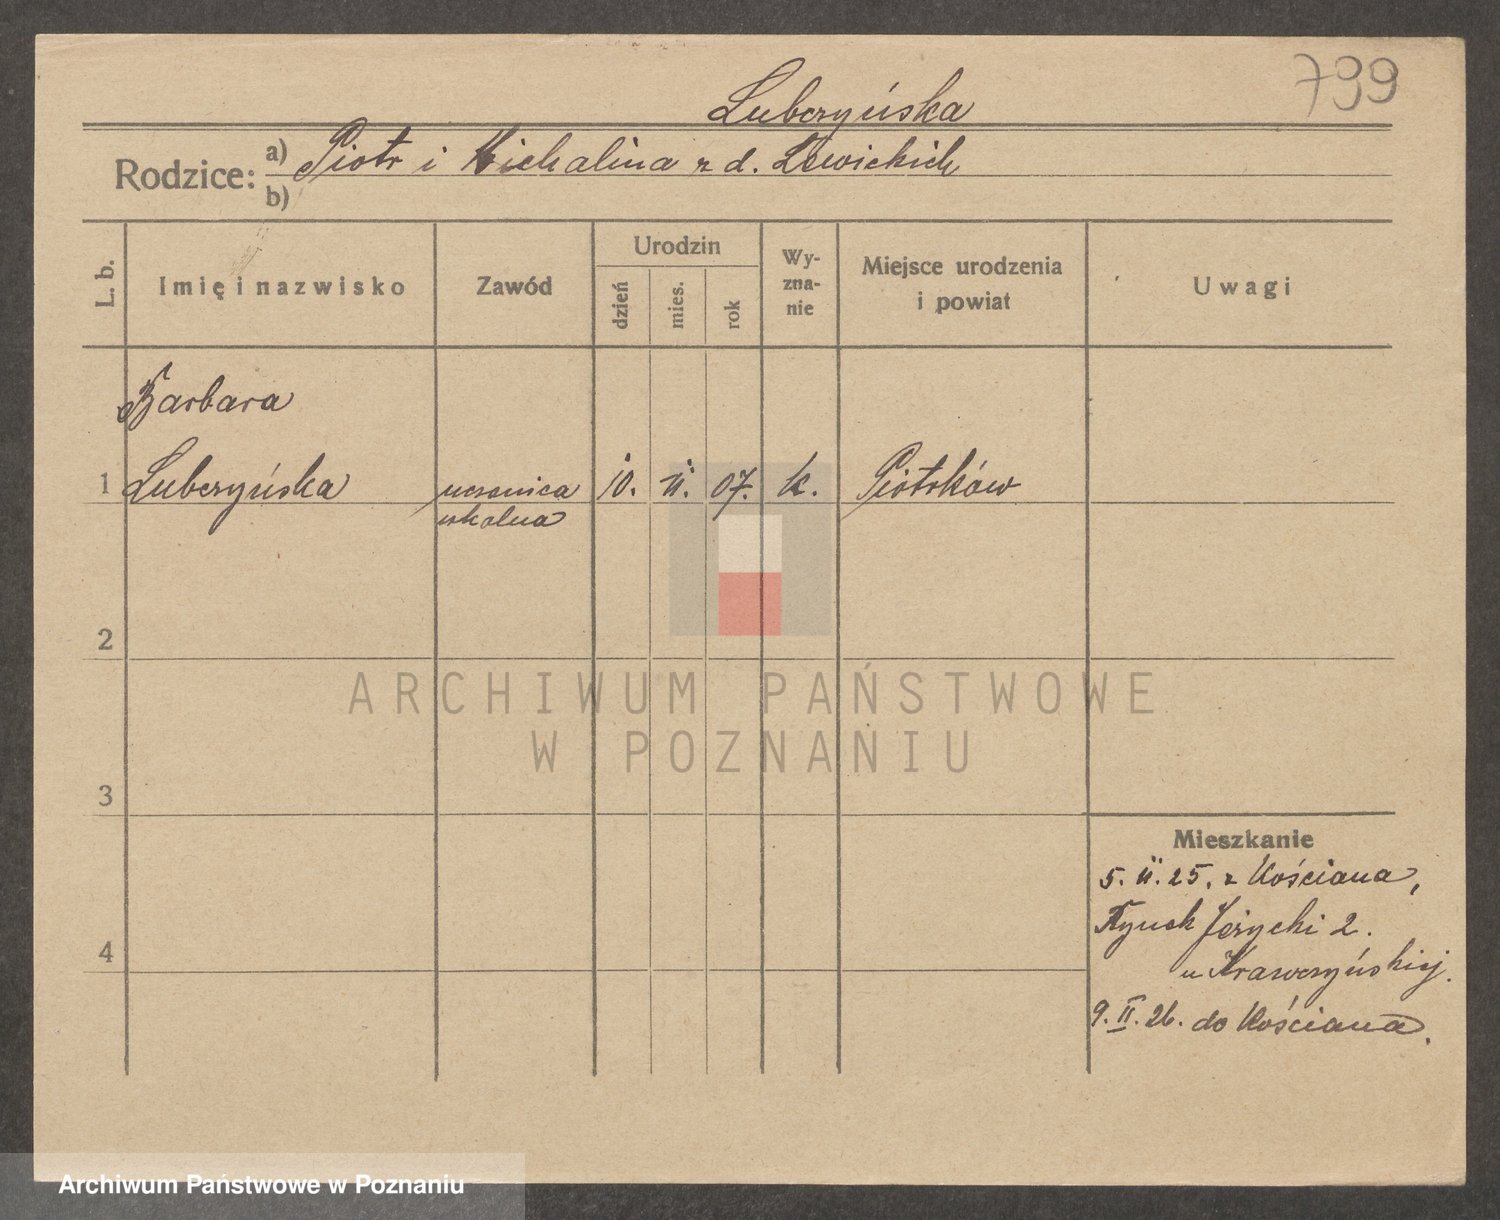 799
Luberzyńska
Rodzice: a) Piotr i Michalina z d. Lewickich
b)
L. b.
Imię i nazwisko
Zawód
Urodzin
dzień
mies.
rok
Wy-
zna-
nie
Miejsce urodzenia
i powiat
Uwagi
Barbara
1 Luberzyńska uczenica 10. II. 07. k. Piotrków
szkolna
2
ARCHIWUM PAŃSTWOWE
W POZNANIU
3
Mieszkanie
5. II. 25. z Kościana,
Rynek Jeżycki 2.
4
u Krawczyńskiej.
9. II. 26. do Kościana.
Archiwum Państwowe w Poznaniu